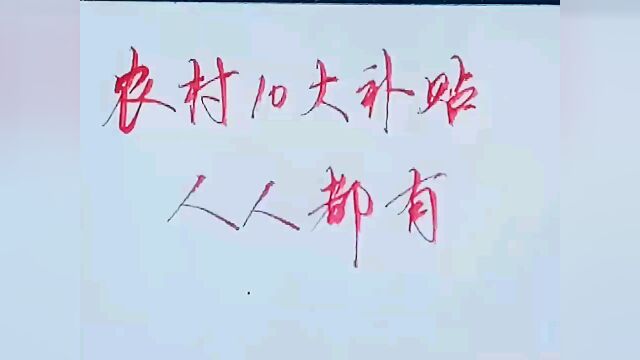 农村10大补贴
人人都有